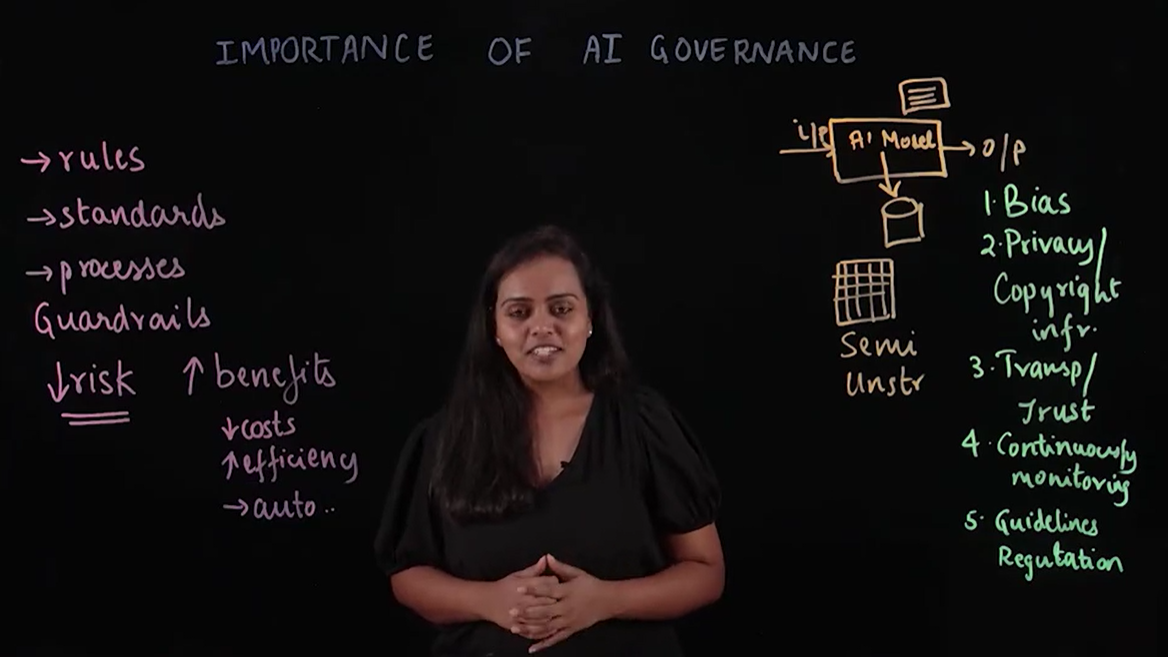 IMPORTANCE OF AI GOVERNANCE
→ rules
→ standards
→ processes
Guardrails
↓ risk ↑ benefits
↓ costs
↑ efficiency
→ auto ..
i/p AI Model → O/P
Semi
Unstr
1. Bias
2. Privacy/
Copyright
infr.
3. Transp/
Trust
4. Continuously
monitoring
5. Guidelines
Regulation